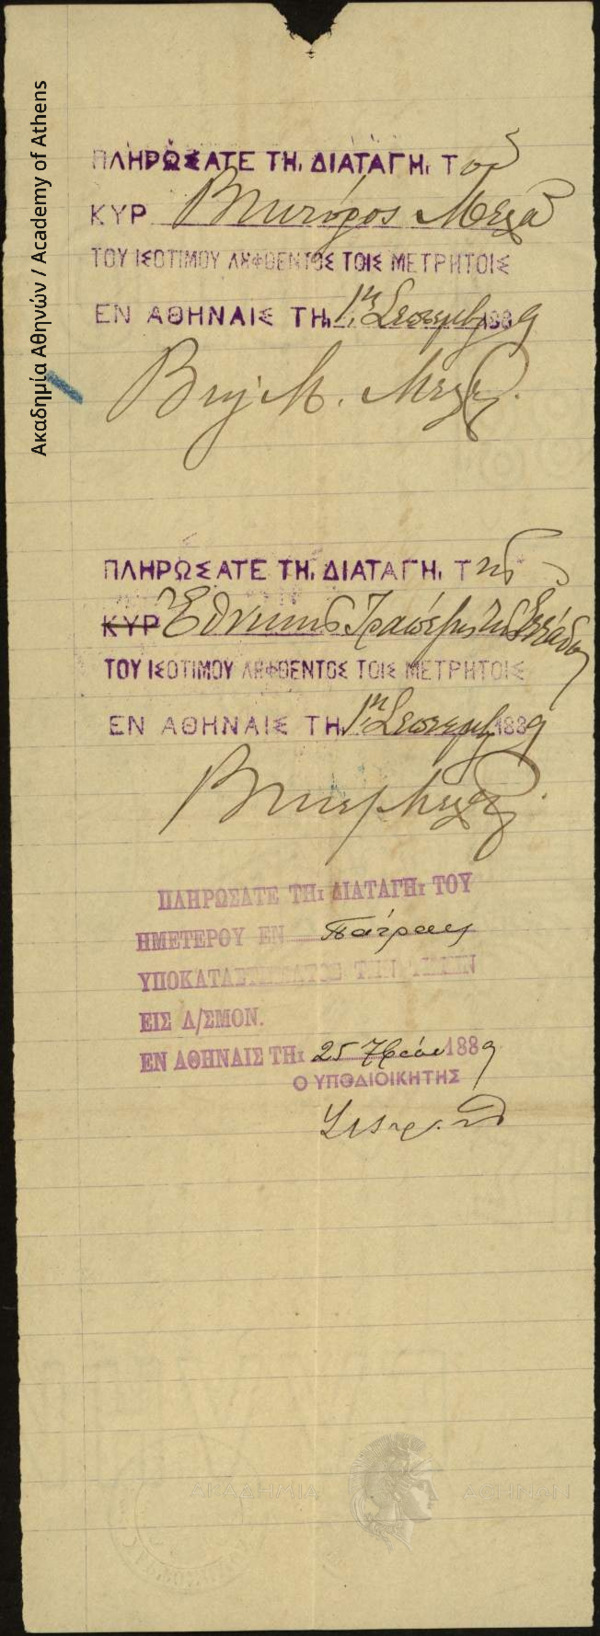 Ακαδημία Αθηνών / Academy of Athens
ΠΛΗΡΩΣΑΤΕ ΤΗι ΔΙΑΤΑΓΗι Τοῦ
ΚΥΡ Βίκτωρος Μελᾶ
ΤΟΥ ΙΣΟΤΙΜΟΥ ΛΗΦΘΕΝΤΟΣ ΤΟΙΣ ΜΕΤΡΗΤΟΙΣ
ΕΝ ΑΘΗΝΑΙΣ ΤΗι 1ῃ Σεπτεμβρ 1889
Μ. Μελᾶς
ΠΛΗΡΩΣΑΤΕ ΤΗι ΔΙΑΤΑΓΗι Τῆς
ΚΥΡ Ἐθνικῆς Τραπέζης τῆς Ἑλλάδος
ΤΟΥ ΙΣΟΤΙΜΟΥ ΛΗΦΘΕΝΤΟΣ ΤΟΙΣ ΜΕΤΡΗΤΟΙΣ
ΕΝ ΑΘΗΝΑΙΣ ΤΗι 1ῃ Σεπτεμβρ 1889
Μελᾶς
ΠΛΗΡΩΣΑΤΕ ΤΗι ΔΙΑΤΑΓΗι ΤΟΥ
ΗΜΕΤΕΡΟΥ ΕΝ Πάτραις
ΥΠΟΚΑΤΑΣΤΗΜΑΤΟΣ ΤΗΝ ΑΞΙΑΝ
ΕΙΣ Λ/ΣΜΟΝ.
ΕΝ ΑΘΗΝΑΙΣ ΤΗι 25 7βρίου 1889
Ο ΥΠΟΔΙΟΙΚΗΤΗΣ
ΑΚΑΔΗΜΙΑ ΑΘΗΝΩΝ